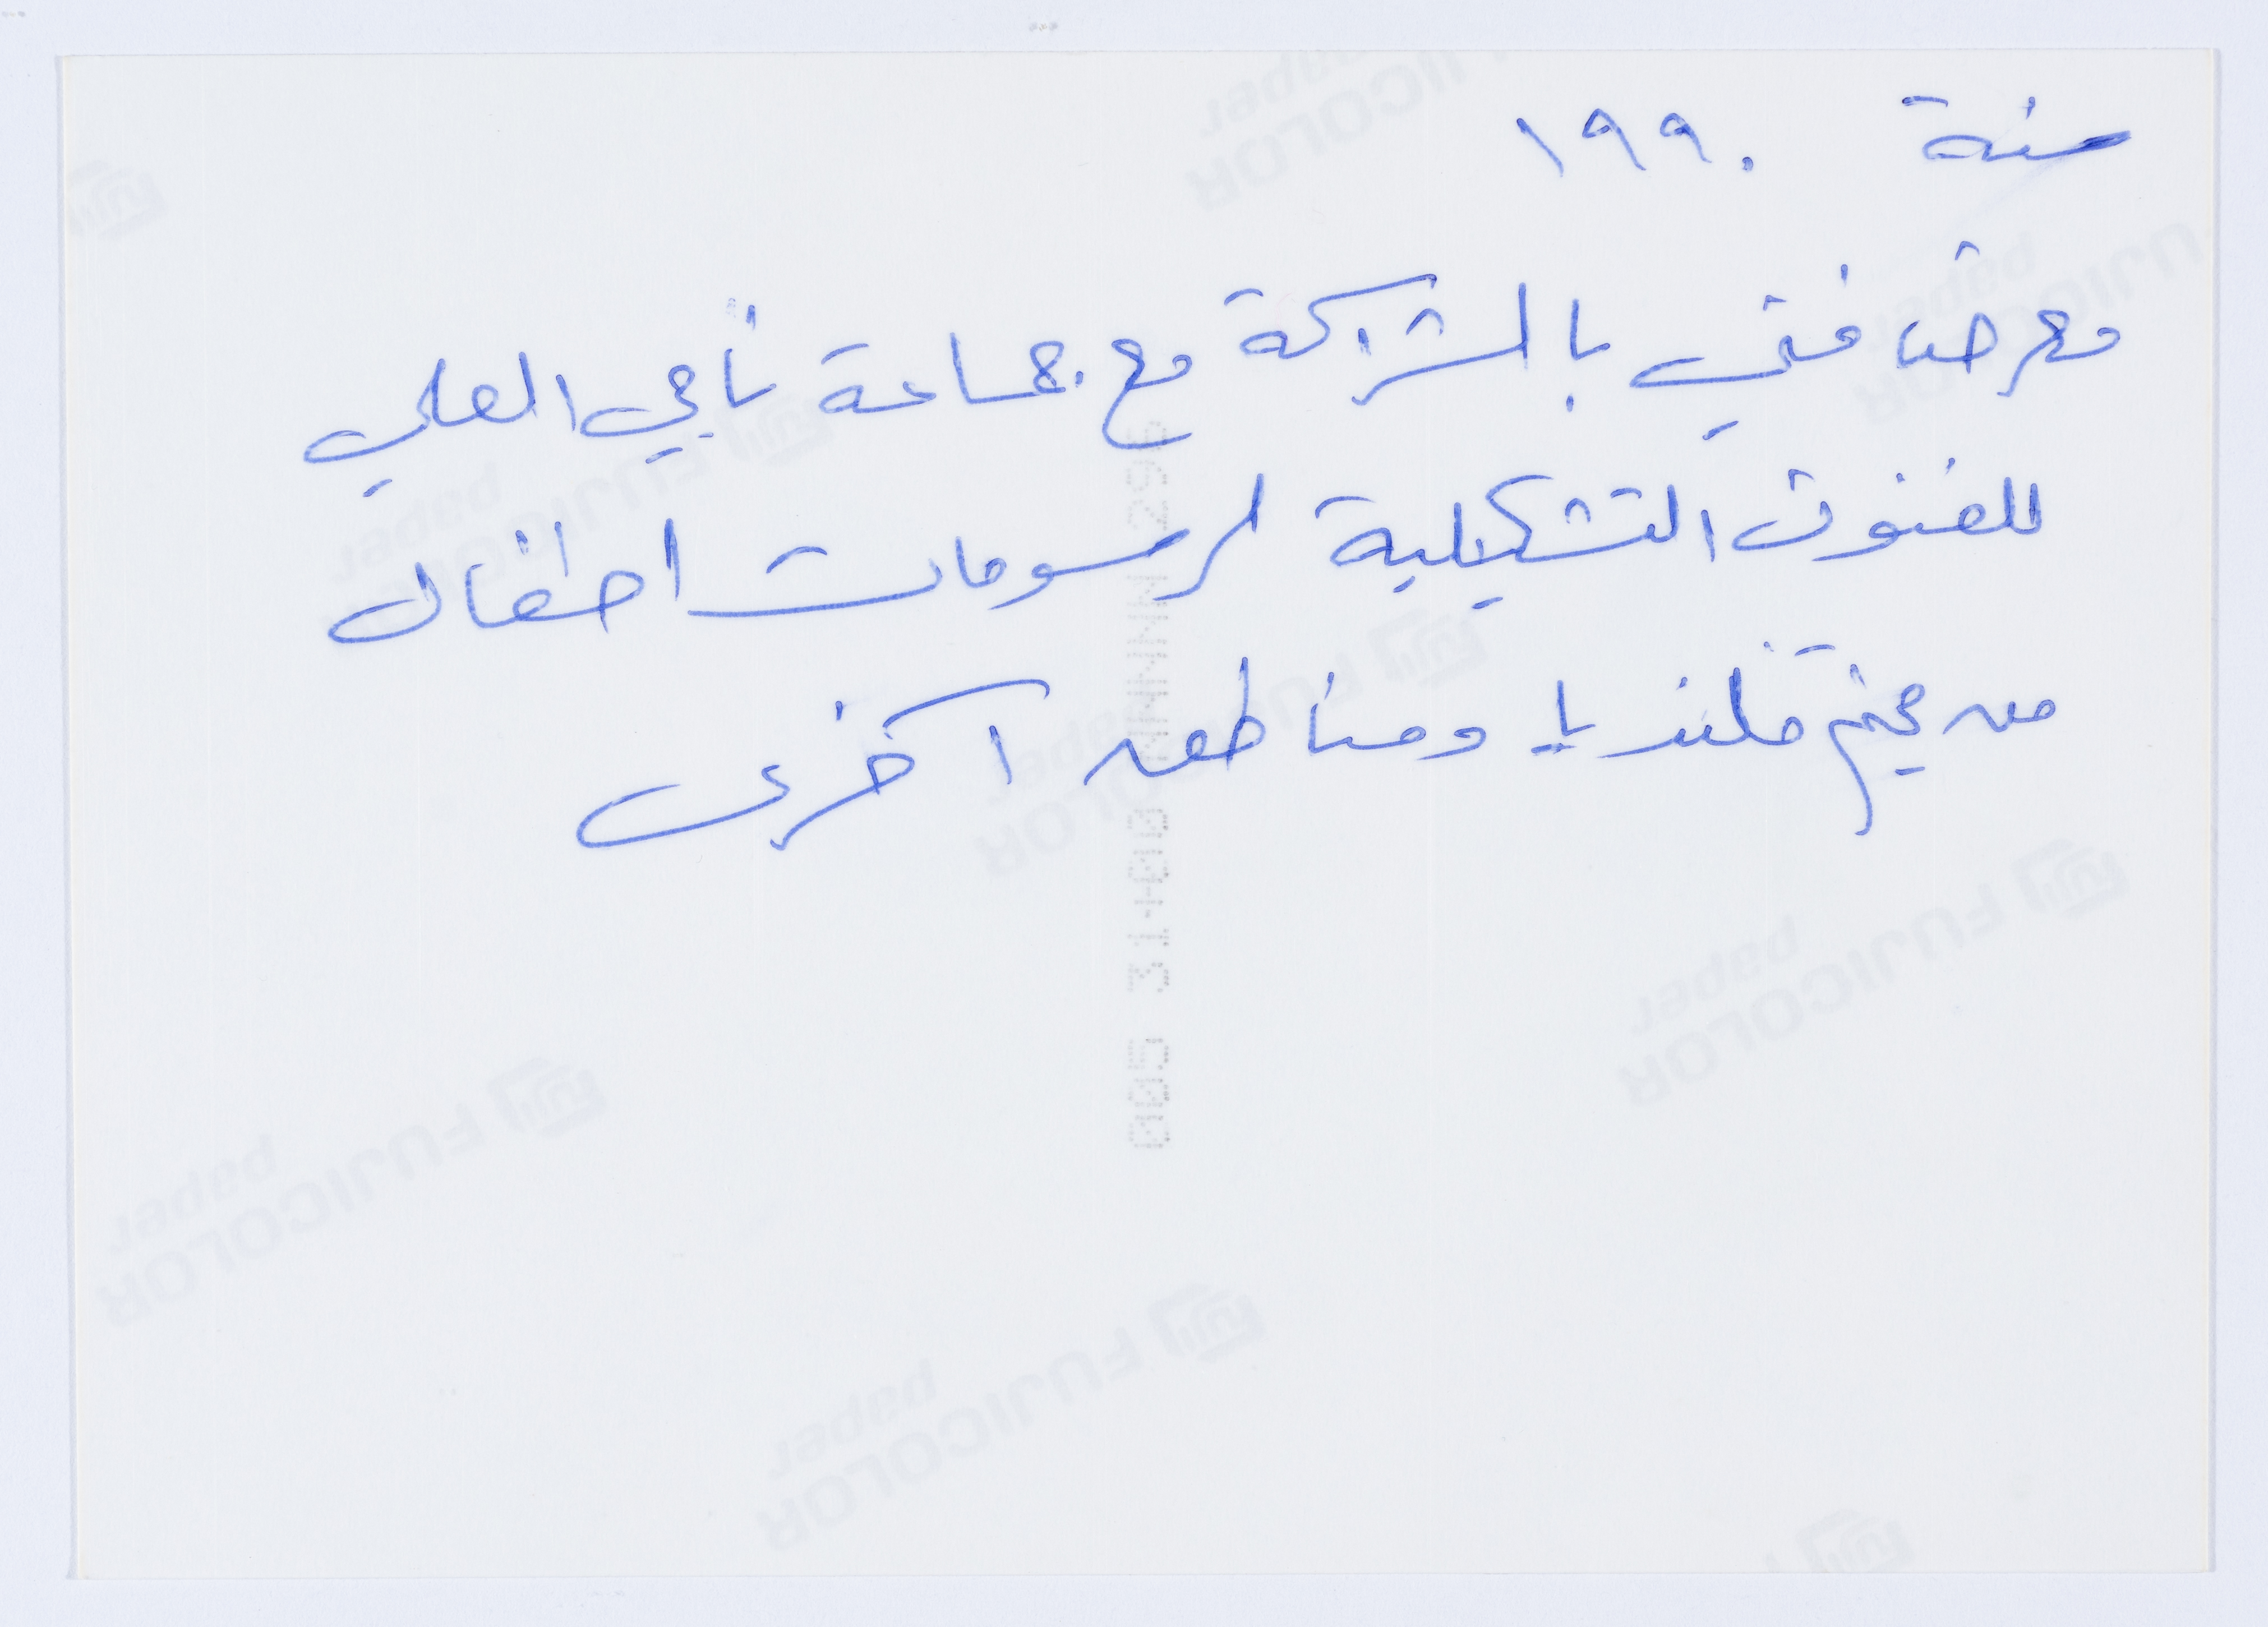 سنة ١٩٩٠
معرض فني بالشراكة مع جماعة ناجي العلي
للفنون التشكيلية لرسومات اطفال
من مخيم قلنديا ومناطق اخرى
FUJICOLOR
paper